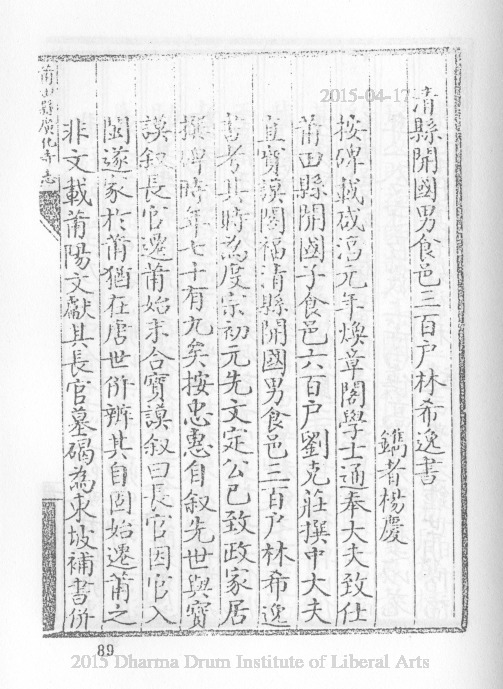 清縣開國男食邑三百户林希逸書
鐫者楊慶
按碑載咸淳元年煥章閣學士通奉大夫致仕
莆田縣開國子食邑六百户劉克莊撰中大夫
直寶謨閣福清縣開國男食邑三百户林希逸
書考其時為度宗初元先文定公已致政家居
撰碑時年七十有九矣按忠惠自叙先世與寶
謨叙長官遷莆始末合寶謨叙曰長官因官入
閩遂家於莆猶在唐世俯辨其自固始遷莆之
非文載莆陽文獻其長官墓碣為東坡補書俯
莆田縣廣化寺志
89
2015-04-17
2015 Dharma Drum Institute of Liberal Arts